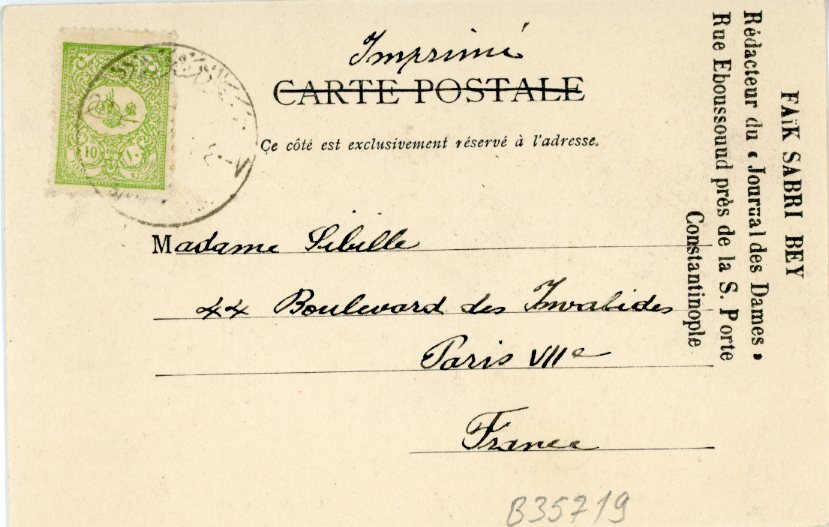 Imprimé
CARTE POSTALE
Ce côté est exclusivement réservé à l'adresse.
10 ١٠
Madame Sibille
44 Boulevard des Invalides
Paris VIIe
France
FAïK SABRI BEY
Rédacteur du « Journal des Dames »
Rue Eboussoud près de la S. Porte
Constantinople
B35719